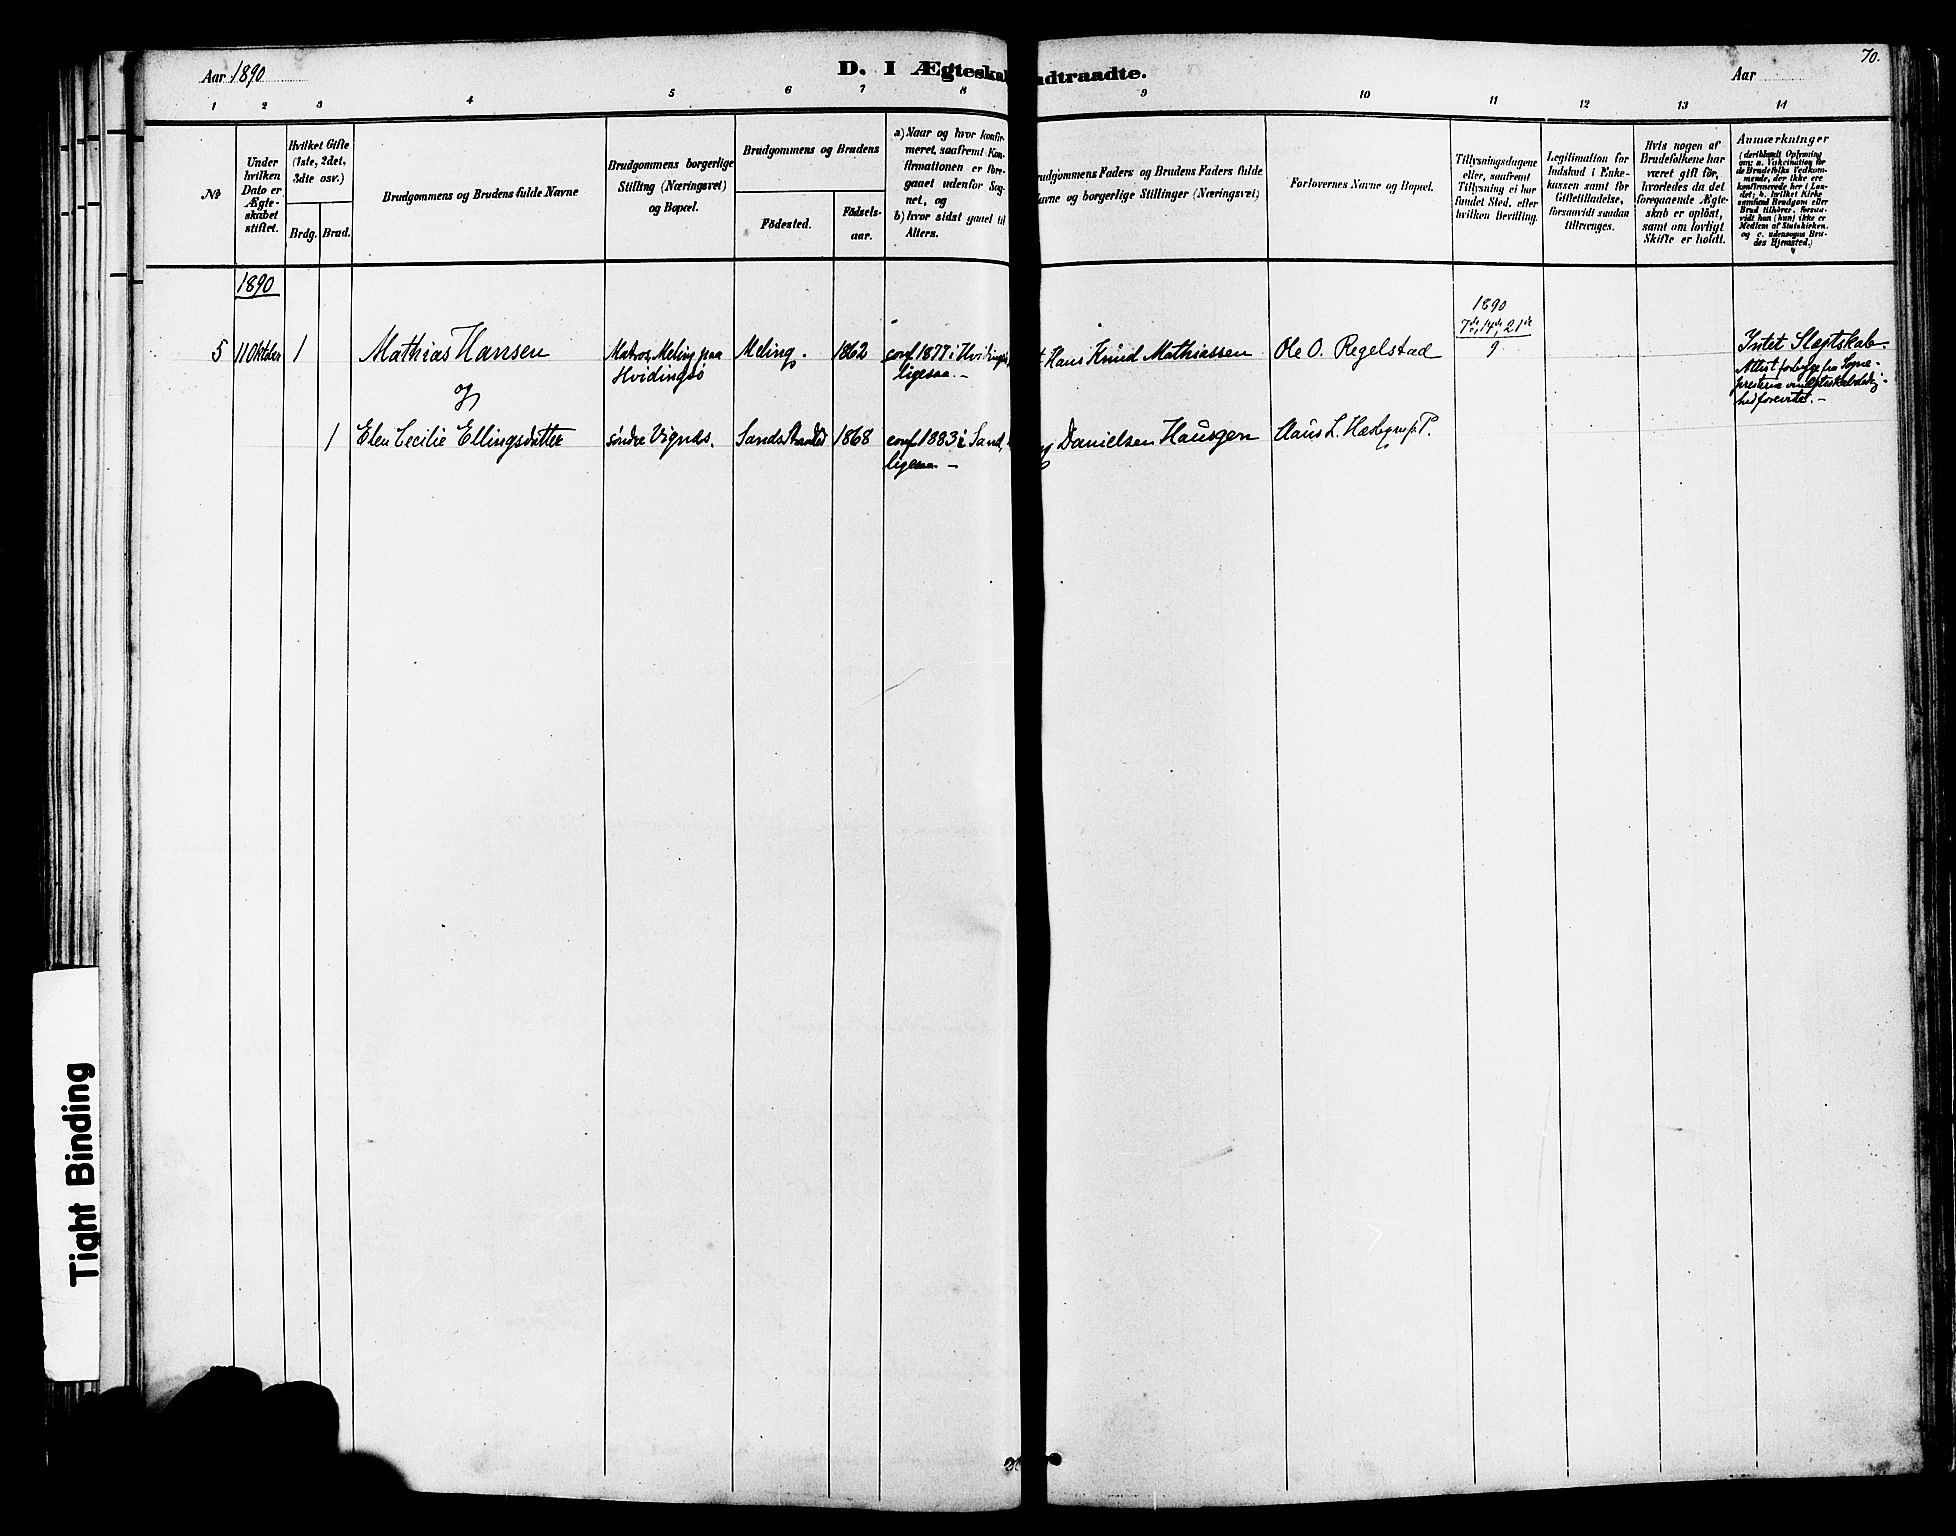 70.
Aar 1890
D. I Ægteskab Indtraadte.
Aar
1 2 3 4 5 6 7 8 9 10 11 12 13 14
No
Under hvilken Dato er Ægteskabet stiftet.
Hvilket Gifte (1ste, 2det, 3die osv.)
Brdg. Brud.
Brudgommens og Brudens fulde Navne
Brudgommens borgerlige Stilling (Næringsvei) og Bopæl.
Brudgommens og Brudens
Födested.
Födsels-aar.
a) Naar og hvor konfirmeret, saafremt Konfirmationen er foregaaet udenfor Sognet, og
b) hvor sidst gaaet til Alters.
Brudgommens Faders og Brudens Faders fulde Navne og borgerlige Stillinger (Næringsvei)
Forlovernes Navne og Bopæl.
Tillysningsdagene eller, saafremt Tillysning ei har fundet Sted, efter hvilken Bevilling.
Legitimation for Indskud i Enkekassen samt for Giftetilladelse, forsaavidt saadan tiltrænges.
Hvis nogen af Brudefolkene har været gift før, hvorledes da det foregaaende Ægteskab er opløst, samt om lovligt Skifte er holdt.
Anmærkninger
(deriblandt Oplysning om: a. Vakcination for de Brudefolks Vedkommende, der ikke ere konfirmerede her i Landet; b. hvilket Kirkesamfund Brudgom eller Brud tilhører, forsaavidt han (hun) ikke er Medlem af Statskirken, og c. udensogns Brudes Hjemsted.)
1890
1890
7de, 14de, 21de
9
5 11 Oktober 1 Mathias Hansen Matros, Meling paa Meling. 1862 conf 1877 i Hvidingsø, Hans Knud Mathiassen Ole O. Regelstad Intet Slegtskab.
Hvidingsø ligesaa. —
Attest forelagt fra Sogne-
og
1 Elen Cecilie Ellingsdatter søndre Vignæs. Sands 1868 conf 1883 i Sand, Danielsen Haugen
ligesaa. —
Tight Binding